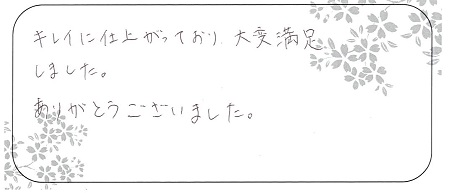 キレイに仕上がっており、大変満足
しました。
ありがとうございました。